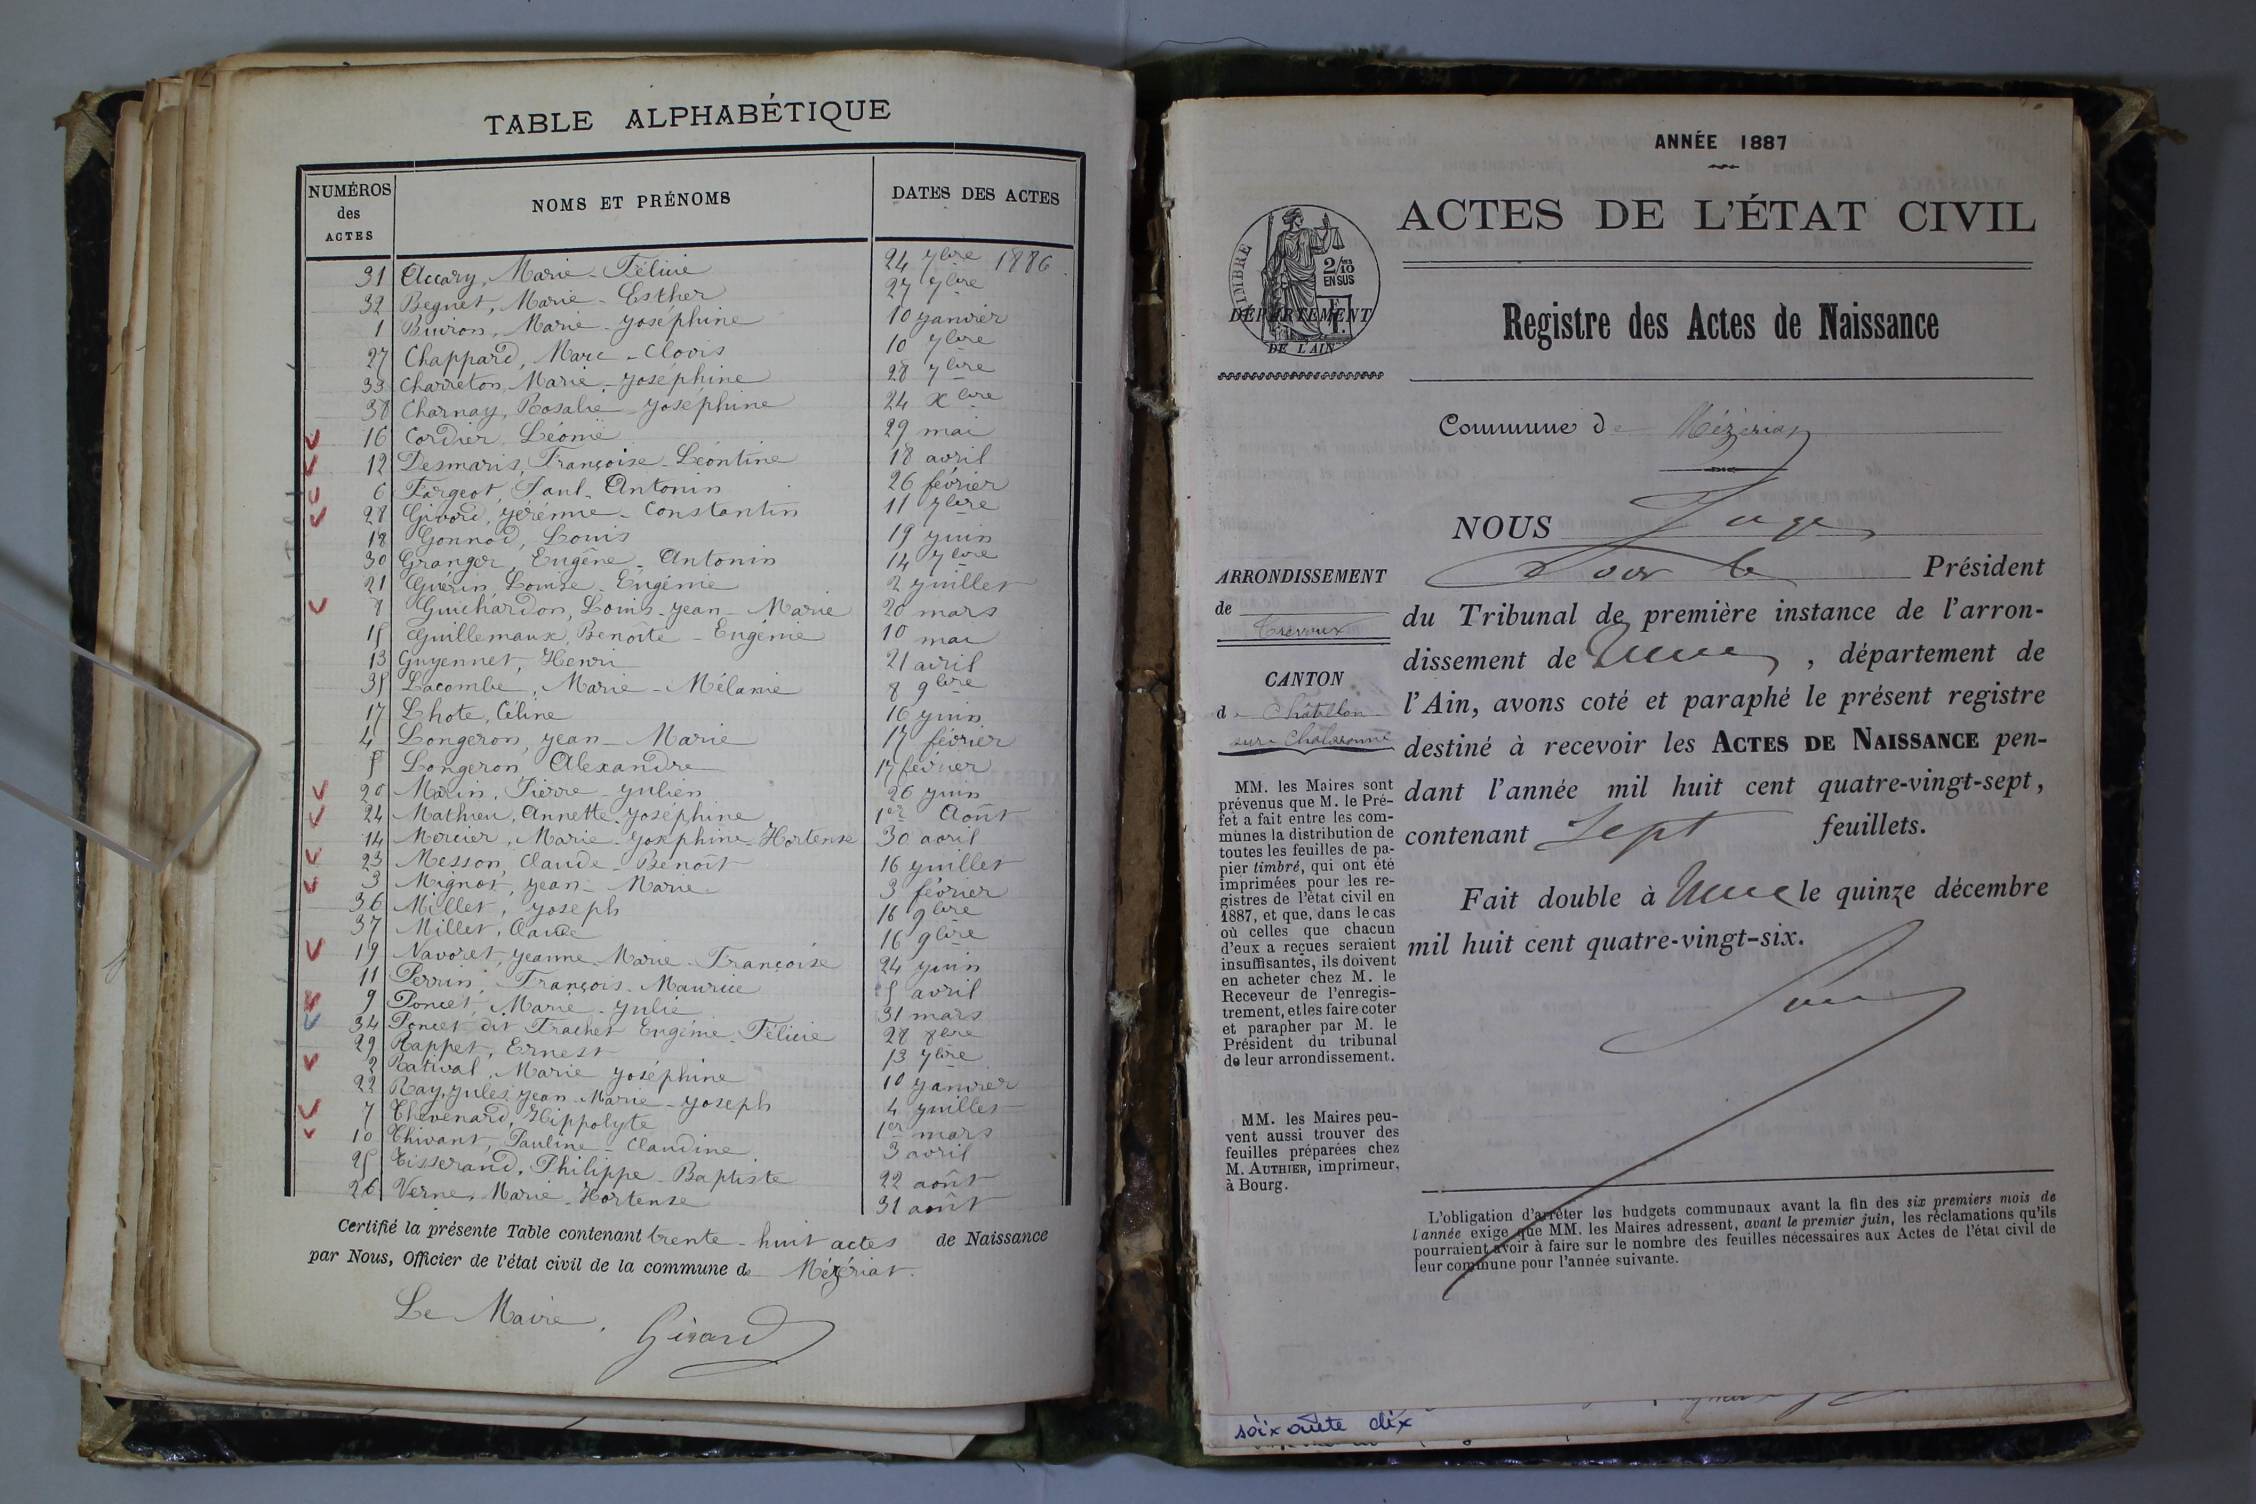 TABLE ALPHABÉTIQUE
NUMÉROS des ACTES NOMS ET PRÉNOMS DATES DES ACTES
31 Accary, Marie-Félicie 24 7bre 1886
32 Beguet, Marie-Esther 27 7bre
1 Buiron, Marie-Joséphine 10 Janvier
27 Chappard, Marc-Clovis 10 7bre
33 Charreton, Marie-Joséphine 28 7bre
38 Charnay, Rosalie-Joséphine 24 Xbre
16 Cordier, Léonie 29 mai
12 Desmaris, Françoise-Léontine 18 avril
6 Fargeot, Paul-Antonin 26 février
28 Givord, Jérémie-Constantin 11 7bre
18 Gonnod, Louis 19 juin
30 Granger, Eugêne-Antonin 14 7bre
21 Guérin, Louise-Eugénie 2 Juillet
8 Guichardon, Louis-Jean-Marie 20 mars
15 Guillemaux, Benoîte-Eugénie 10 mai
13 Guyennet, Henri 21 avril
35 Lacombe, Marie-Mélanie 8 9bre
17 Lhote, Céline 16 juin
4 Longeron, Jean-Marie 17 février
5 Longeron, Alexandre 17 février
20 Marin, Pierre-Julien 26 juin
24 Mathieu, Annette-Joséphine 1er Août
14 Mercier, Marie-Joséphine-Hortense 30 avril
23 Messon, Claude-Benoît 16 Juillet
3 Mignot, Jean-Marie 3 février
36 Millet, Joseph 16 9bre
37 Millet, Claude 16 9bre
19 Navoret, Jeanne-Marie-Françoise 24 juin
11 Perrin, François-Maurice 5 avril
9 Poncet, Marie-Julie 31 mars
34 Poncet dit Frachet Eugénie-Félicie 28 8bre
29 Rappet, Ernest 13 7bre
2 Ratival, Marie Joséphine 10 Janvier
22 Ray, Jules, Jean-Marie-Joseph 4 Juillet
7 Thévenard, Hippolyte 1er mars
10 Thivant, Pauline-Claudine 3 avril
25 Tisserand, Philippe-Baptiste 22 août
26 Verne, Marie-Hortense 31 août
Certifié la présente Table contenant trente-huit actes de Naissance
par Nous, Officier de l'état civil de la commune de Mézériat.
Le Maire,
Girard
ANNÉE 1887
TIMBRE
2/10
EN SUS
DÉPARTEMENT
DE L'AIN
ACTES DE L'ÉTAT CIVIL
Registre des Actes de Naissance
Commune de Mézériat
NOUS Juge
Pour le Président
du Tribunal de première instance de l'arron-
dissement de , département de
l'Ain, avons coté et paraphé le présent registre
destiné à recevoir les ACTES DE NAISSANCE pen-
dant l'année mil huit cent quatre-vingt-sept,
contenant Sept feuillets.
Fait double à le quinze décembre
mil huit cent quatre-vingt-six.
ARRONDISSEMENT
de
Trévoux
CANTON
de Châtillon
sur-Chalaronne
MM. les Maires sont
prévenus que M. le Pré-
fet a fait entre les com-
munes la distribution de
toutes les feuilles de pa-
pier timbré, qui ont été
imprimées pour les re-
gistres de l'état civil en
1887, et que, dans le cas
où celles que chacun
d'eux a reçues seraient
insuffisantes, ils doivent
en acheter chez M. le
Receveur de l'enregis-
trement, et les faire coter
et parapher par M. le
Président du tribunal
de leur arrondissement.
MM. les Maires peu-
vent aussi trouver des
feuilles préparées chez
M. AUTHIER, imprimeur,
à Bourg.
L'obligation d'arrêter les budgets communaux avant la fin des six premiers mois de
l'année exige que MM. les Maires adressent, avant le premier juin, les réclamations qu'ils
pourraient avoir à faire sur le nombre des feuilles nécessaires aux Actes de l'état civil de
leur commune pour l'année suivante.
soixante dix